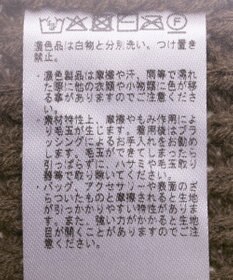 濃色品は白物と分別洗い。つけ置き
禁止。
・濃色製品は摩擦や汗、雨等で濡れ
た際に他の衣類や小物類に色が移
る事がありますのでご注意くださ
い。
・素材特性上、摩擦やもみ作用によ
り毛玉が生じます。着用後はブラ
ッシングによるお手入れをお勧め
します。毛玉ができてしまったら
引っぱらずに、ハサミや毛玉取り
器等で取り除いてください。
・バッグ、アクセサリーや表面のざ
らついたものと摩擦されると生地
が引っかかりやすい特性がありま
す。また、強い力がかかると生地
目が開くことがありますのでご注
意ください。